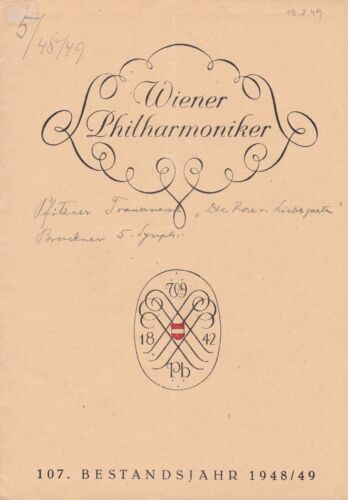 5/48/49
13.2.49
Wiener
Philharmoniker
Pfitzner Trauermarsch „Die Rose v. Liebesgarten"
Bruckner 5. Symph.
W
18 42
Ph
107. BESTANDSJAHR 1948/49